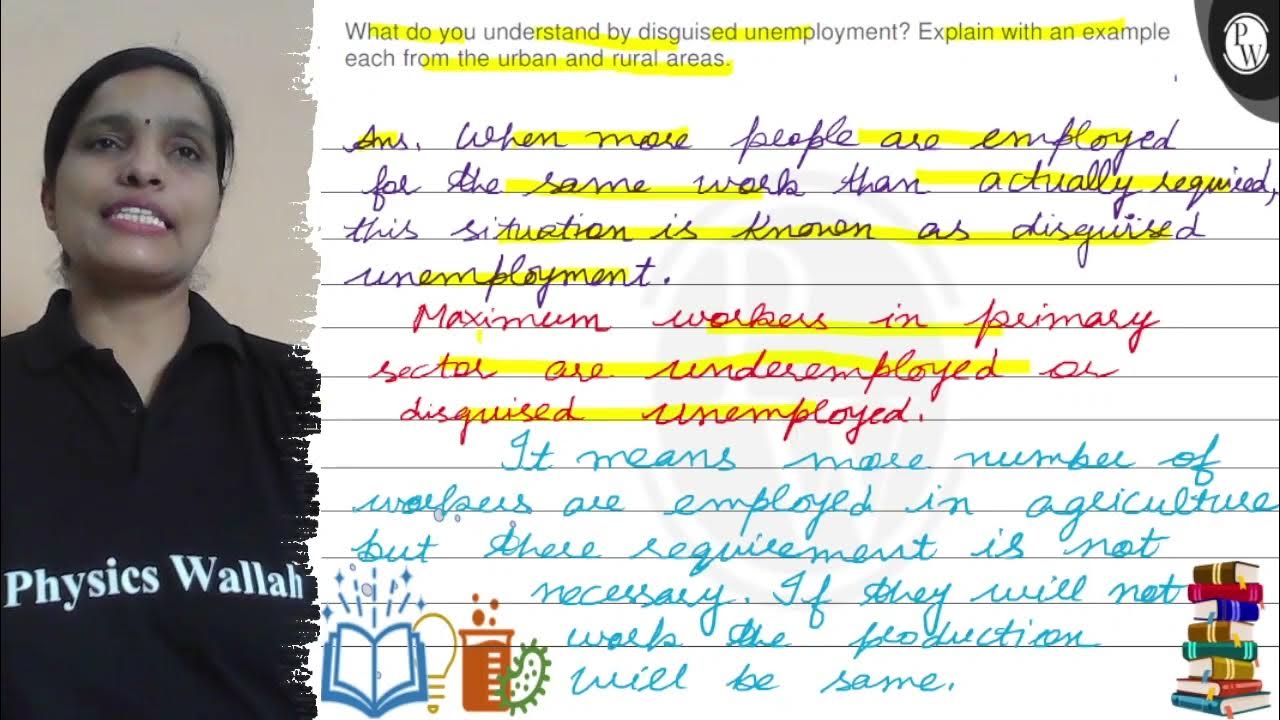 What do you understand by disguised unemployment? Explain with an example
each from the urban and rural areas.
PW
Ans. When more people are employed
for the same work than actually required,
this situation is known as disguised
unemployment.
Maximum workers in primary
sector are underemployed or
disguised unemployed.
It means more number of
workers are employed in agriculture
but there requirement is not
necessary. If they will not
work the production
will be same.
Physics Wallah